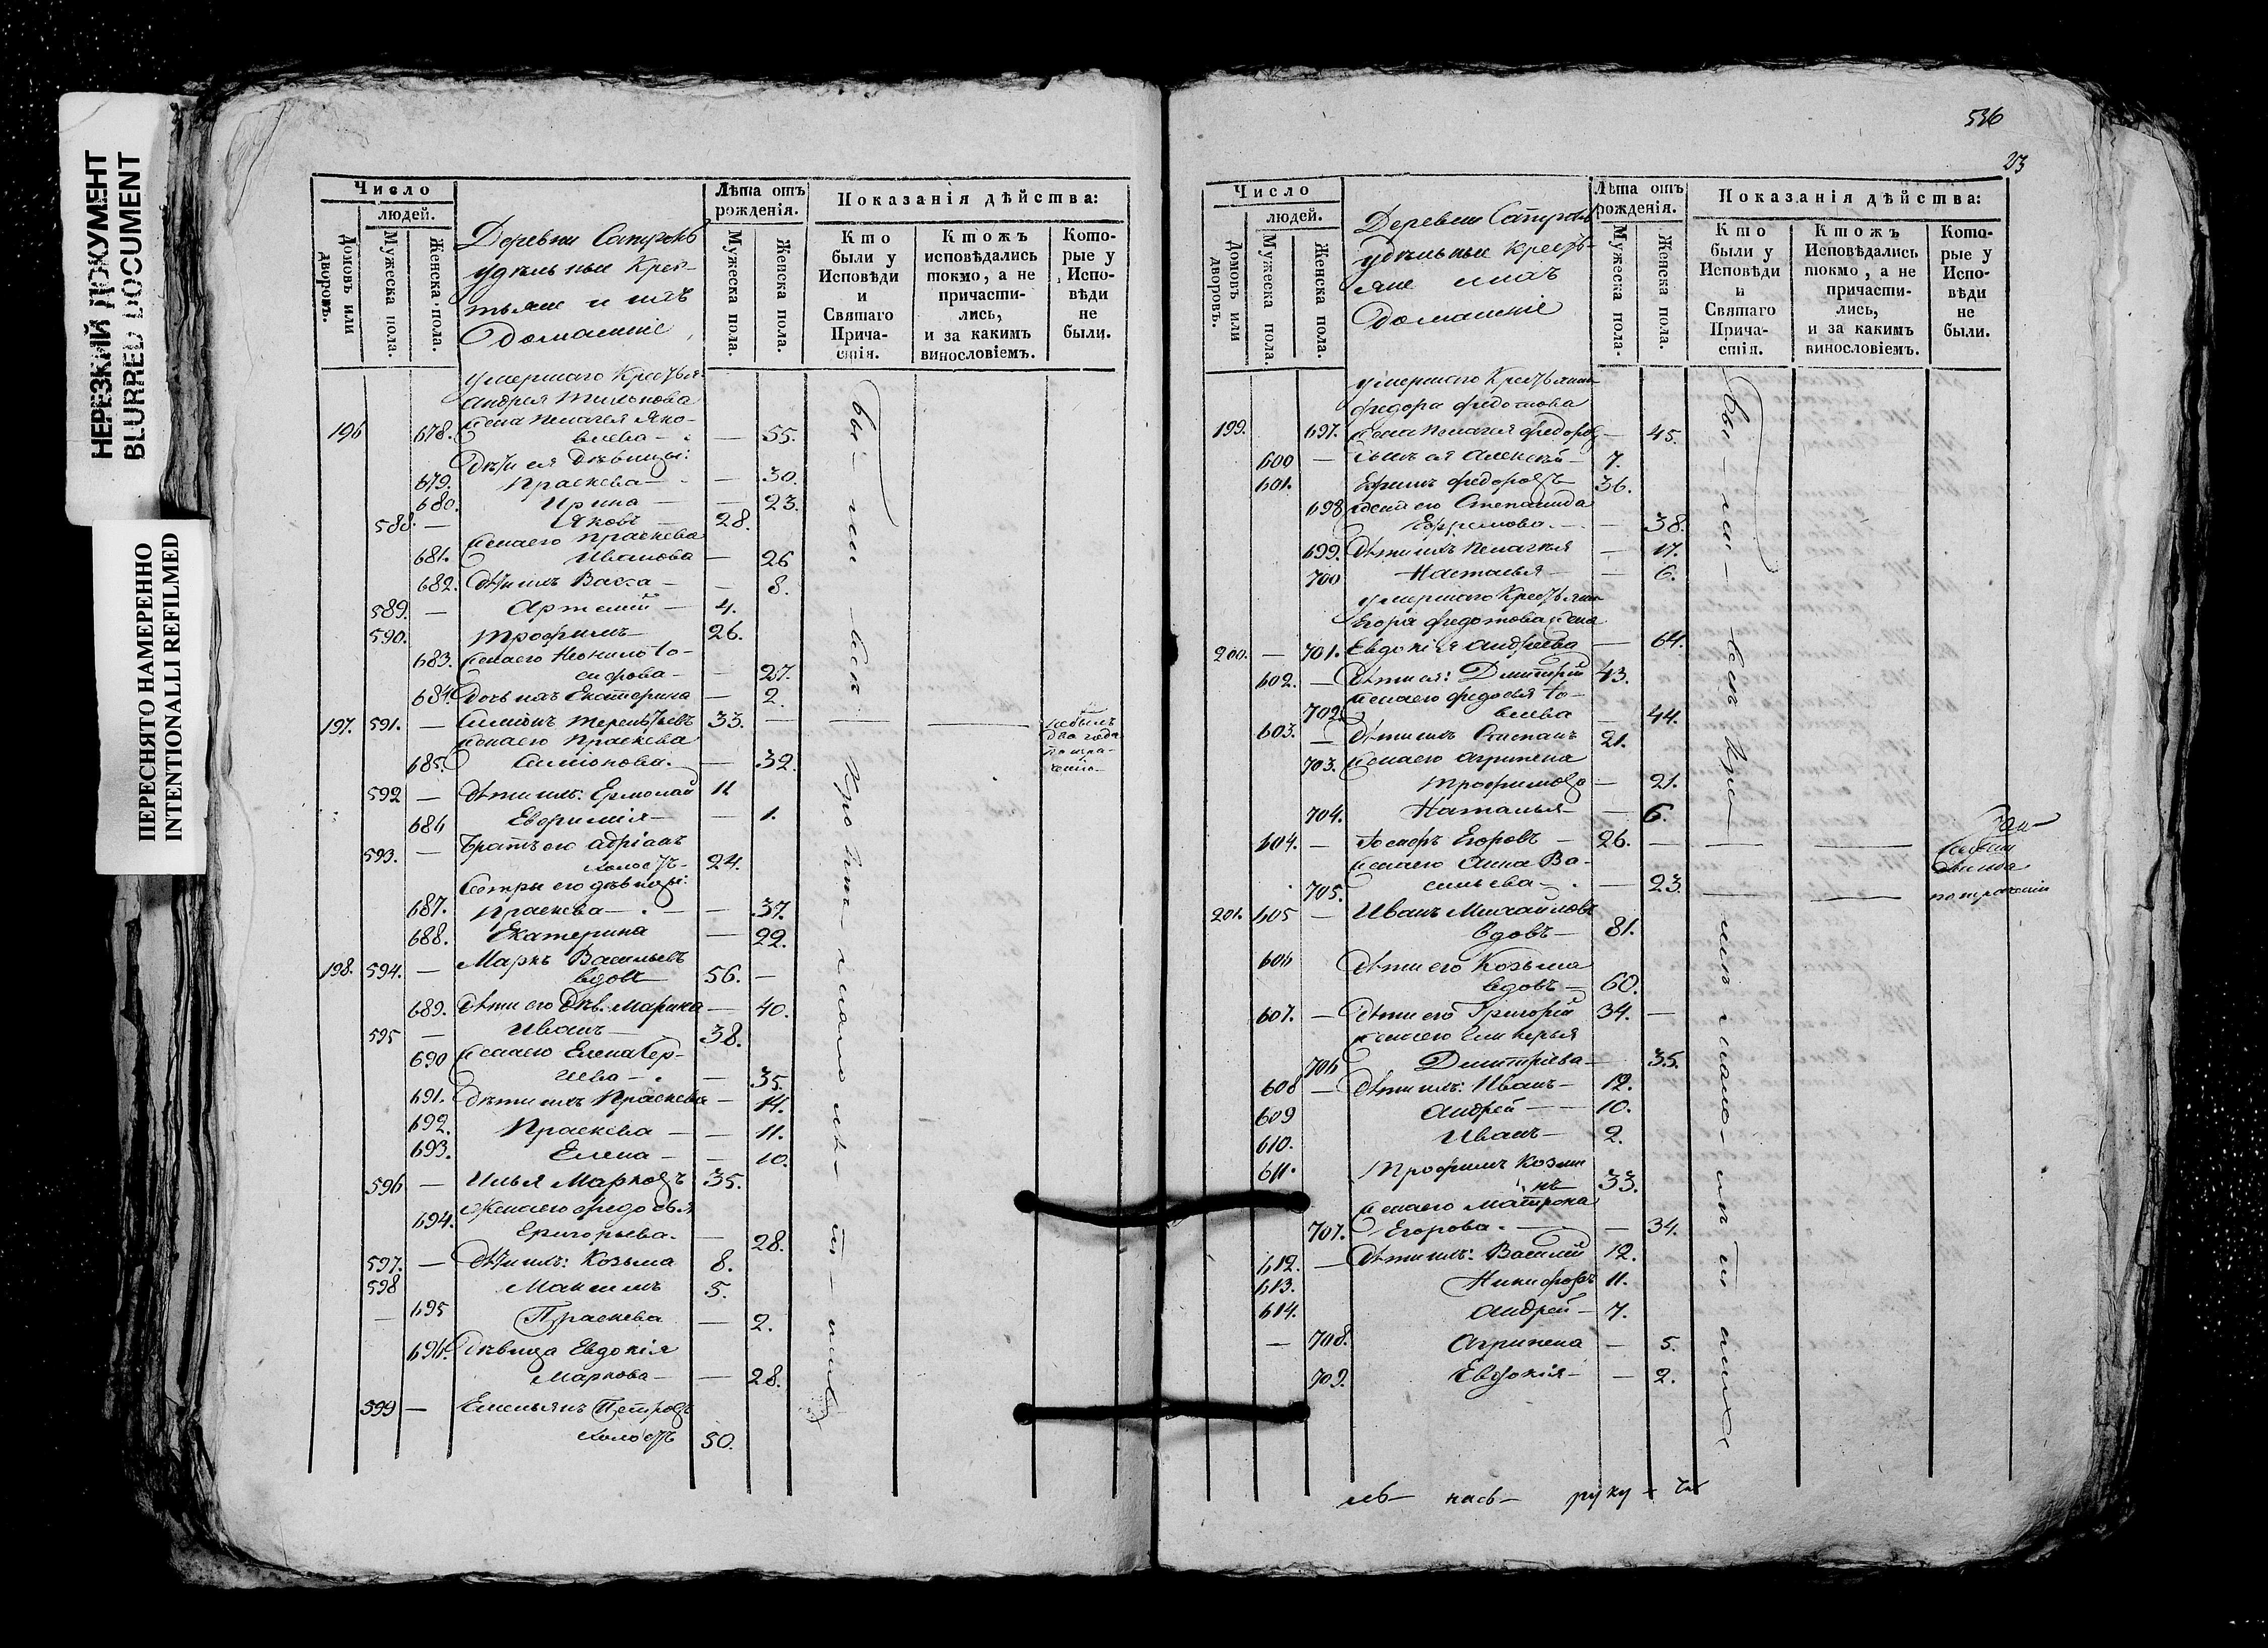 НЕРЕЗКИЙ ДОКУМЕНТ
BLURRED DOCUMENT
ПЕРЕСНЯТО НАМЕРЕННО
INTENTIONALLI REFILMED
Число
людей.
Домовъ или дворовъ.
Мужеска пола.
Женска пола.
Деревни
удѣльные Крес-
тьяне и ихъ
домашніе
Лѣта отъ рожденія.
Мужеска пола.
Женска пола.
Показанія дѣйства:
Кто были у Исповѣди и Святаго Прича-стія.
Ктожъ исповѣдались токмо, а не причасти-лись, и за какимъ винословіемъ.
Кото-рые у Испо-вѣди не были.
умершаго Крестья.
андрея
196 678. жена Пелагея Яко-
влева — — 55.
Дѣти ея дѣвицы:
679. Праскева — — 30.
680. Ирина — — 23.
588. — Яковъ — 28.
жена его Праскева
681. Иванова — 26
682. дѣти ихъ Васса — — 8.
589. — Артемій — 4.
590. Трофимъ 26.
683. жена его Неонила Іо-
сифова — — 27.
684 дочь ихъ Екатерина — 2.
197. 591. — Симіонъ Терентьевъ 33. — — —
жена его Праскева
685. Симіонова. — 32.
592 — дѣти ихъ: Ермолай 11
686 Евфимія — — 1.
593. — Братъ его Адріанъ
холостъ — 24.
Сестры его дѣвицы:
687. Праскева — — 37.
688. Екатерина — 22.
198. 594. — Маркъ Васильевъ
вдовъ 56. —
689. дѣти его дѣв. Марина — 40.
595 — Иванъ — 38.
690 жена его Елена Сер-
геева — — 35.
691. дѣти ихъ Праскева — 14.
692. Праскева — — 11.
693. Елена — — 10.
596 — Илья Марковъ 35.
694. Жена его Федосья
Григорьева. — 28.
597. — дѣти ихъ: Козьма 8.
598 Максимъ 5.
— 695 Праскева — 2.
696. дѣвица Евдокія
Маркова — — 28.
599 — Емельянъ Петровъ
холостъ 50.
536
Число
людей.
Домовъ или дворовъ.
Мужеска пола.
Женска пола.
Деревни
удѣльные Кресть-
яне и ихъ
домашніе
Лѣта отъ рожденія.
Мужеска пола.
Женска пола.
Показанія дѣйства:
Кто были у Исповѣди и Святаго Прича-стія.
Ктожъ Исповѣдались токмо, а не причасти-лись, и за какимъ винословіемъ.
Кото-рые у Испо-вѣди не были.
умершаго Крестьянина
федора федотова
199. 697. жена Пелагея федоров. — 45.
600 — сынъ ея Алексѣй — 7.
601. Ефимъ федоровъ 36.
698 жена его Степанида
Ефремова. — — 38.
699. дѣти ихъ Пелагея — 17.
700 Настасья — — 6.
умершаго Крестьянина
Егора федотова жена
200. — 701. Евдокія андреева — 64.
602. — дѣти ея: Димитрій 43.
жена его федосья
702. влева — 44.
603. — дѣти ихъ 21.
703. жена его Агрипена
Трофимова — 21.
704. Наталья — — 6.
604. — Іосифъ Егоровъ — 26. — — —
жена его Анна Ва-
705. сильева — — 23
201. 605 — Иванъ Михайловъ
вдовъ — 81.
606 дѣти его Козьма
вдовъ — 60.
607. — дѣти его Григорій 34. —
жена его
706 Димитріева — 35.
608 — дѣти ихъ: Иванъ — 12.
609 Андрей — 10.
610. Иванъ — 2.
611. Трофимъ Козми
нъ 33.
жена его Матрона
707. Егорова. — — 34.
612. — дѣти ихъ: Василій 12.
613. Никифоръ 11.
614. Андрей — 7.
— 708. Агрипена — 5.
709. Евдокія — — 2.
руку